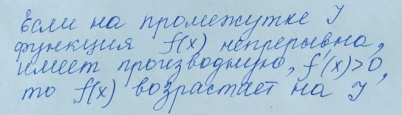 Если на промежутке J
функция f(x) непрерывна,
имеет производную, f'(x)>0,
то f(x) возрастает на J